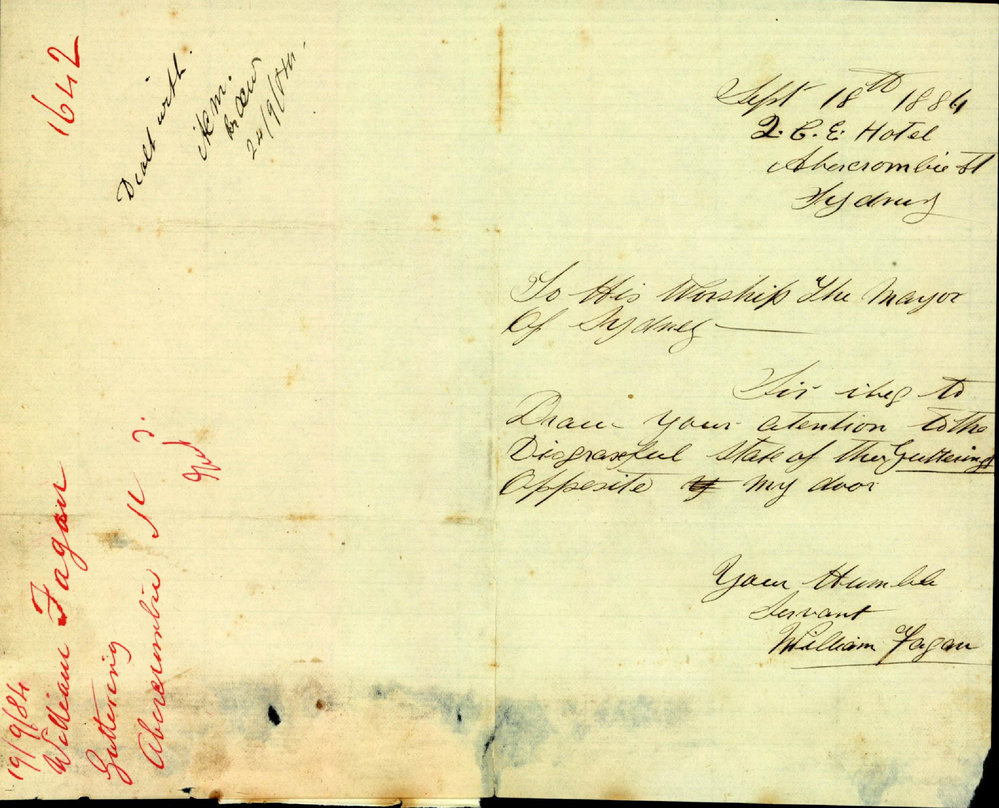 1642
Dealt with.
24/9/84.
19/9/84
William Fagan
Guttering
Abercrombie St
Sept 18th 1884
Q. C. E. Hotel
Abercrombie St
Sydney
To His Worship The Mayor
Of Sydney
Sir i beg to
Draw your atention to the
Disgraseful State of the Guttering
Opposite my door
Your Humble
Servant
William Fagan